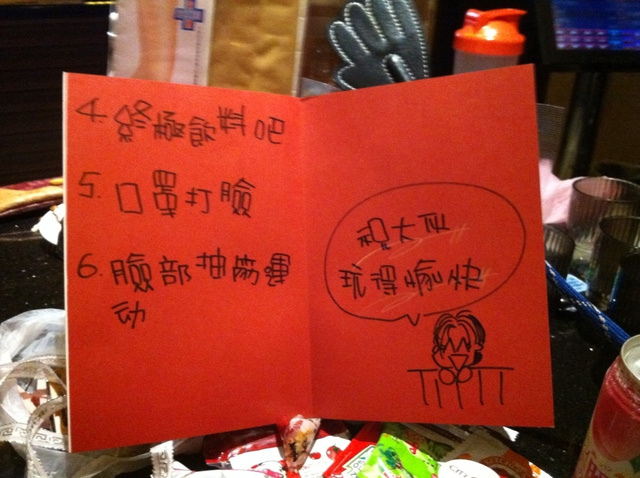 4. 終極飲料吧
5. 口罩打臉
6. 臉部抽筋運
动
祝大家
玩得愉快